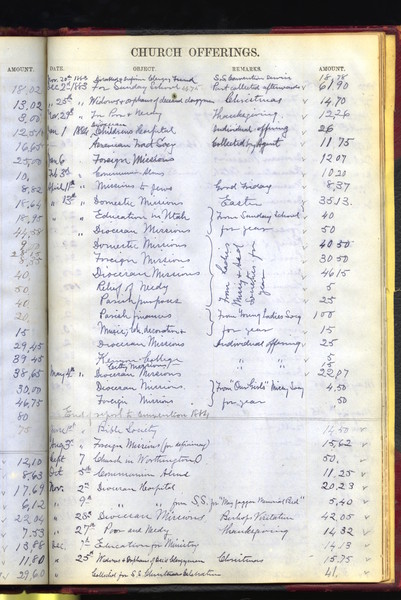 CHURCH OFFERINGS.
AMOUNT. DATE. OBJECT. REMARKS. AMOUNT.
18.02 For Sunday School collected afterwards 61.90
13.02 " 25th Widows & orphans of deceased clergymen Christmas 14.70
Poor & Needy Thanksgiving 12.26
Jan 1 Diocesan Childrens Hospital Individual offering 26
American Tract Socy Collected by Agent 11 75
25,00 Jan 6 Foreign Missions 12 07
10, Feb 3rd Communion Alms 10 20
8,82 April 11th Missions to Jews Good Friday 8.37
18,64 " 13th " Domestic Missions Easter 35 13.
18,95 " Education in Utah From Sunday School 40
" Diocesan Missions for year 50
Domestic Missions 40 50
Foreign Missions 30 50
40 Diocesan Missions 46 15
50 Relief of Needy 5
40 Parish purposes 25
20 Parish finances From Young Ladies Socy 100
15 Music, Ch. decoration & for year 15
29,45 Diocesan Missions Individual offering 25
39.45 Kenyon College " " 5
38,65 May 4th Diocesan Missions 22,07
30,00 Diocesan Missions From "Our Girls" Missy Socy 4.50
46,75 Foreign Missions for year 50
50 End report to Convention
75 Bible Society 14,50
Foreign Missions (for deficiency) 15,62
12,10 Sept 7 Church in Worthington O 50.
8,63 Oct 5th Communion Alms 11.25
17,69 Nov. 2nd Diocesan Hospital 20.23
6,12 9th " " from S.S. for "Memorial Bed" 5,40
22,04 23d Diocesan Missions Bishops Visitation 42,05
7.53 27th Poor and Needy Thanksgiving 14,32
13,88 Dec. 7th Education for Ministry 14,13
11,80 25th Widows & Orphans of Decd Clergymen Christmas 15.75
29,60 Collected for S.S. Christmas Celebration 41.